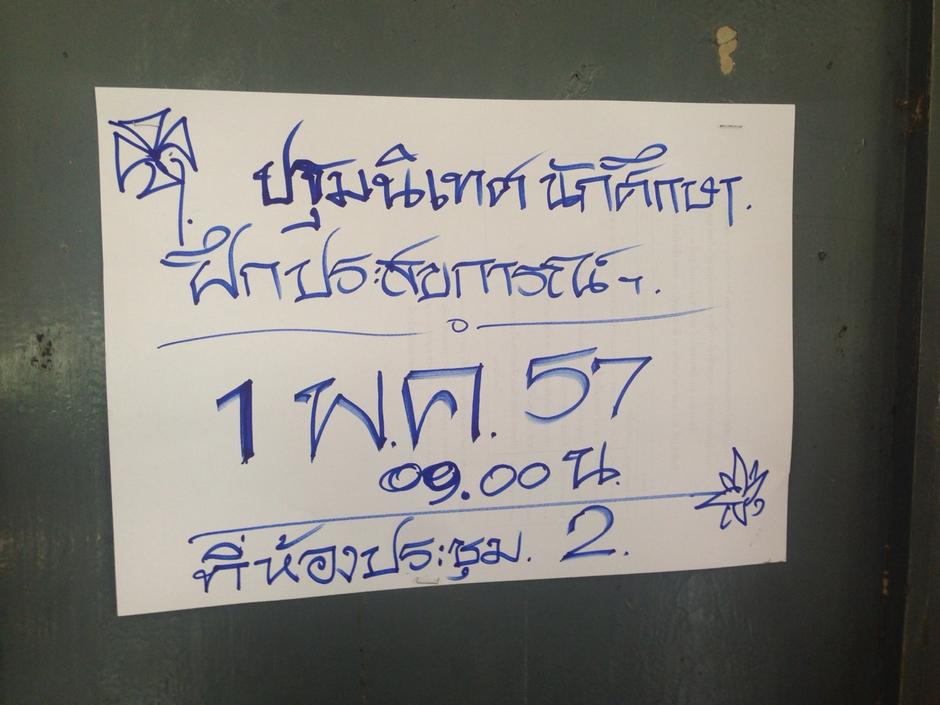 ปฐมนิเทศ นักศึกษา.
ฝึกประสบการณ์ฯ.
1 พ.ค. 57
09.00 น.
ที่ห้องประชุม. 2.